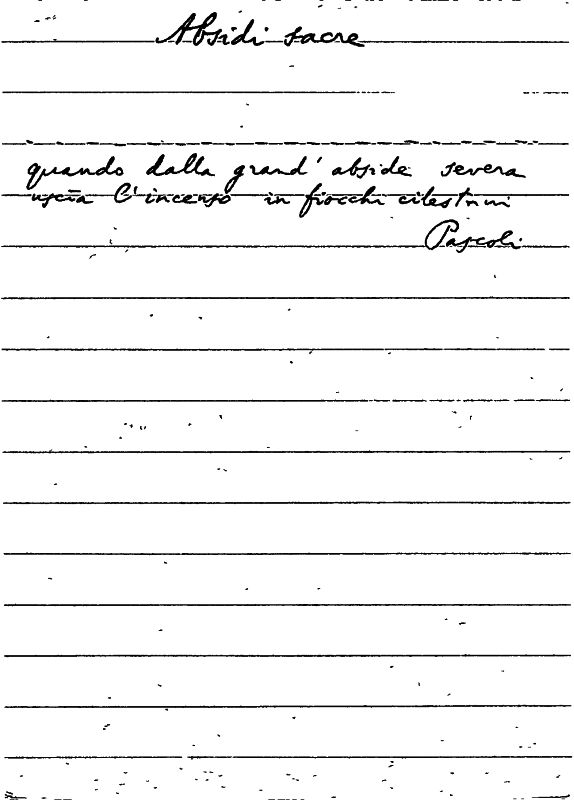 Absidi sacre
quando dalla grand' abside severa
uscìa l'incenso in fiocchi cilestrini
Pascoli